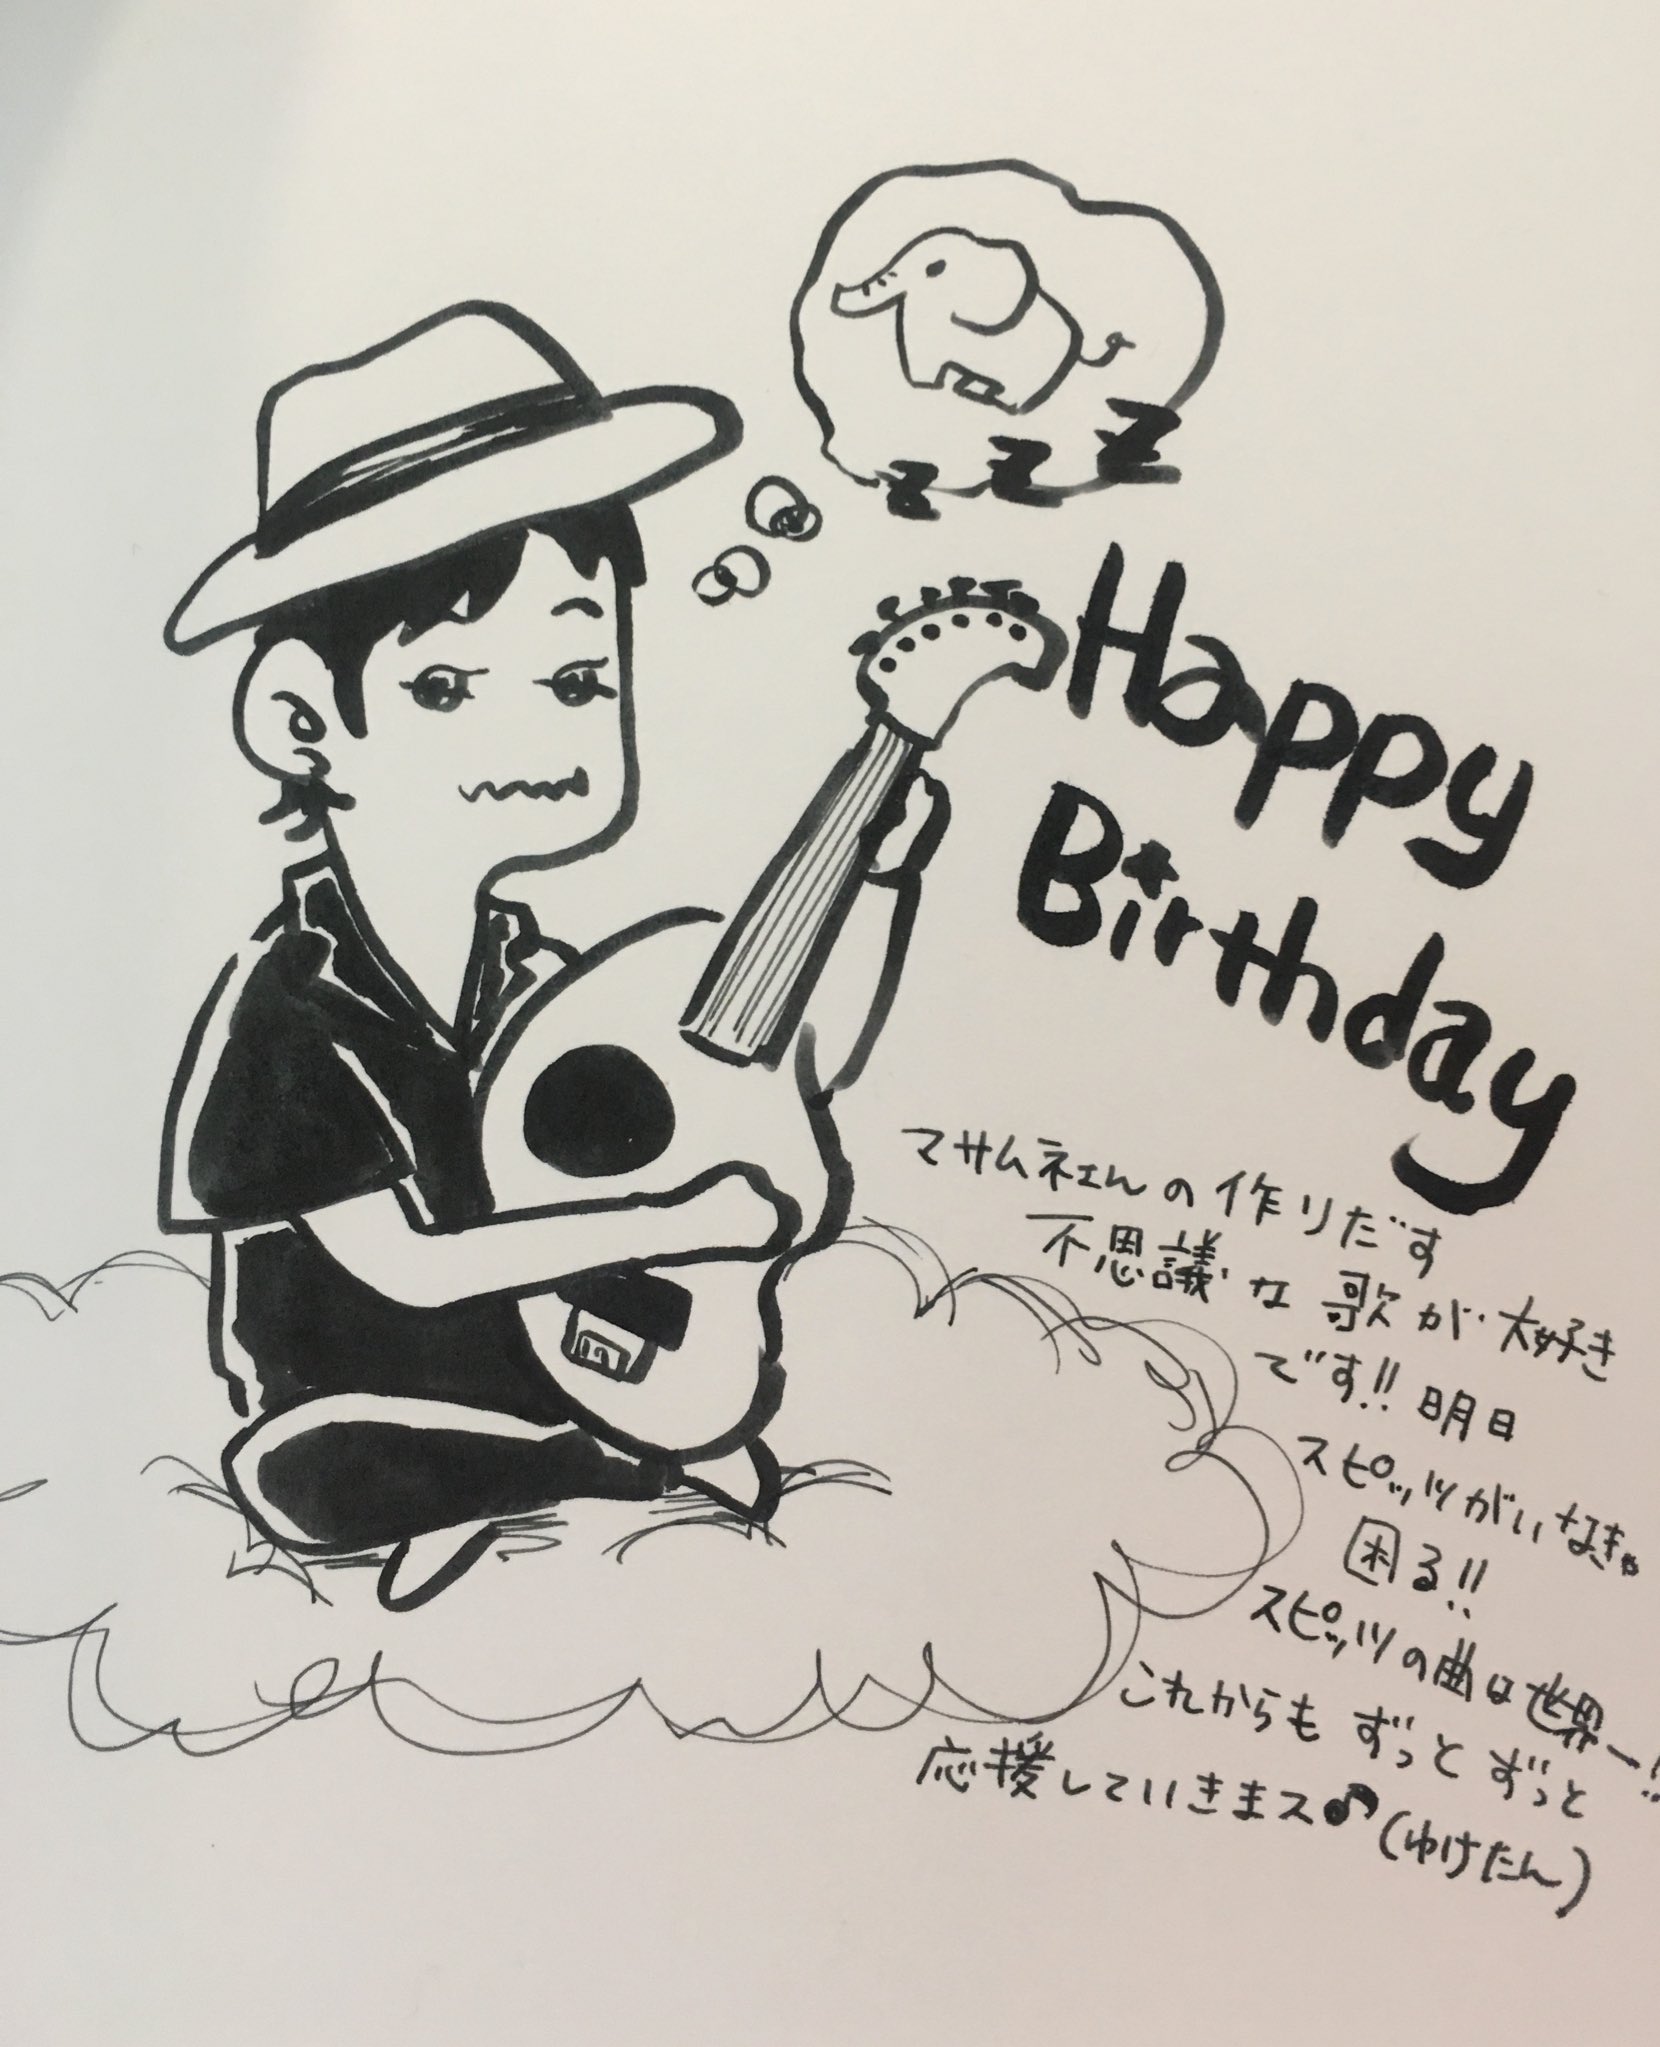 z z Z
Happy
Birthday
マサムネさんの作りだす
不思議な歌が大好き
です!!明日
スピッツがいなきゃ
困る!!
スピッツの曲は世界一!!
これからもずっとずっと
応援していきまス♪(ゆけたん)